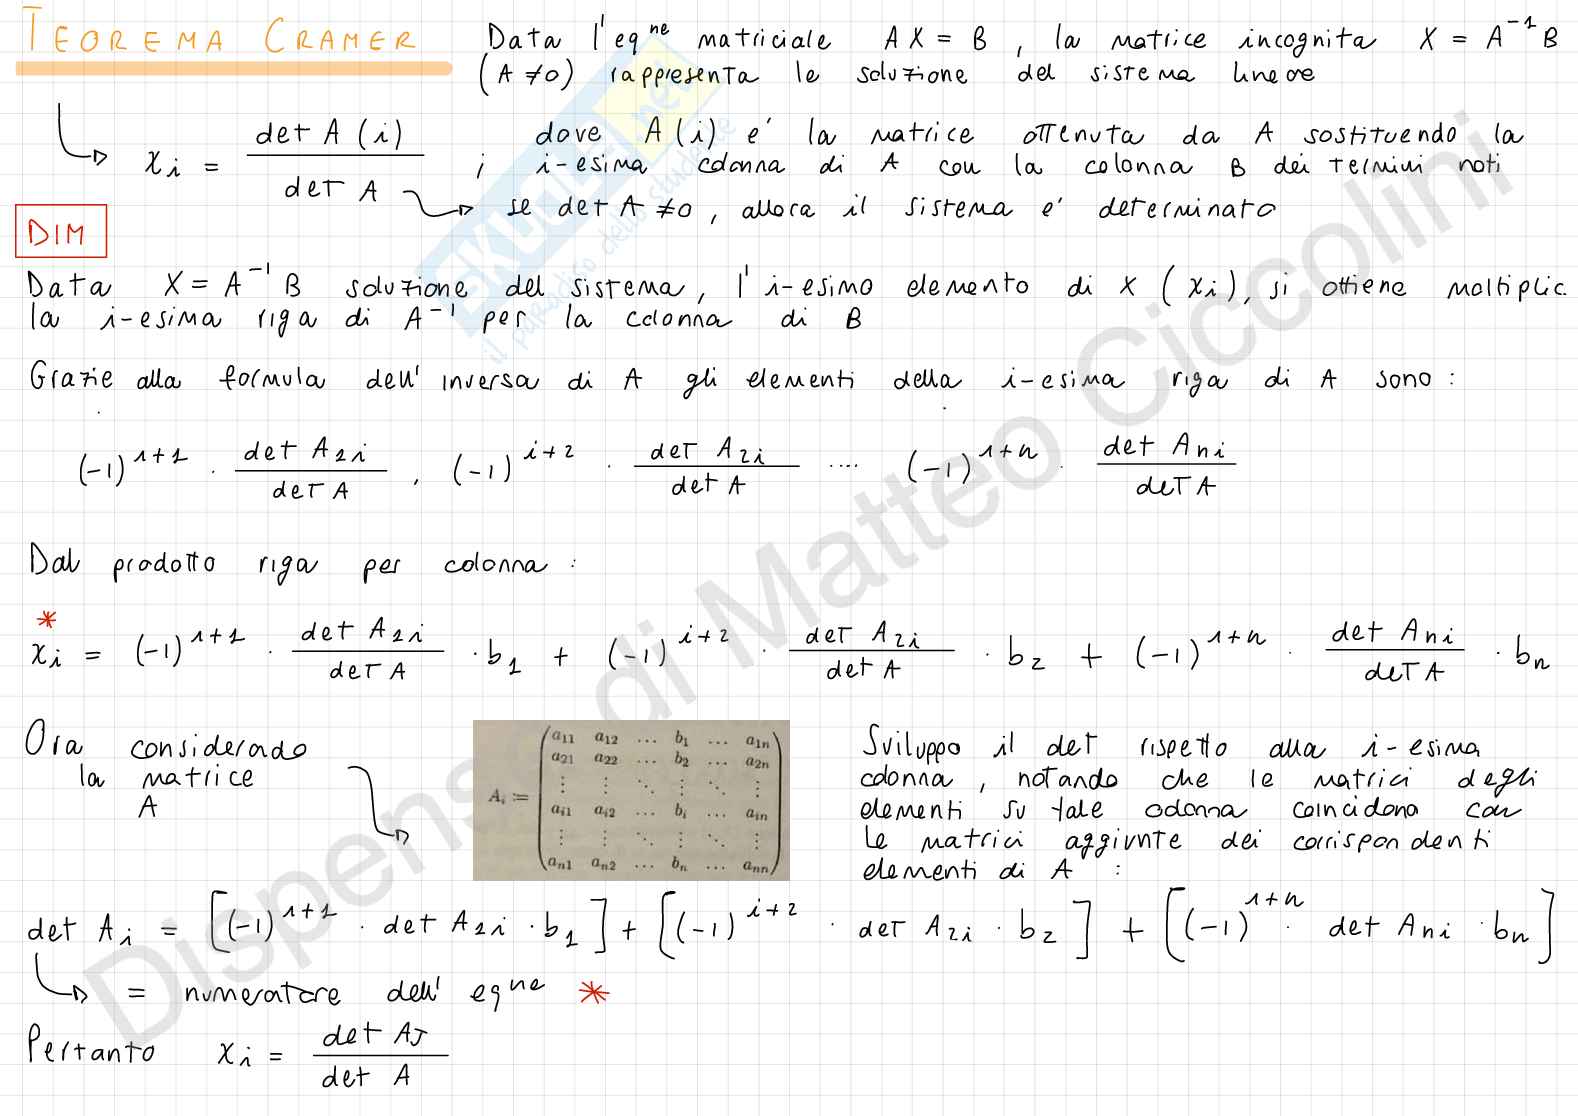 TEOREMA CRAMER
Data l'eq^ne matriciale AX = B , la matrice incognita X = A^-1 B
(A ≠ 0) rappresenta le soluzione del sistema lineare
x_i = det A (i) / det A ; dove A (i) e' la matrice ottenuta da A sostituendo la
i-esima colonna di A con la colonna B dei termini noti
se det A ≠ 0 , allora il sistema e' determinato
DIM
Data X = A^-1 B soluzione del sistema, l' i-esimo elemento di X (x_i), si ottiene moltiplic.
la i-esima riga di A^-1 per la colonna di B
Grazie alla formula dell' inversa di A gli elementi della i-esima riga di A sono :
(-1)^1+1 · det A_1i / det A , (-1)^i+2 · det A_2i / det A .... (-1)^1+n · det A_ni / det A
Dal prodotto riga per colonna :
*
x_i = (-1)^1+1 · det A_1i / det A · b_1 + (-1)^i+2 · det A_2i / det A · b_2 + (-1)^1+n · det A_ni / det A · b_n
Ora considerado
la matrice
A
A_i :=
a_11 a_12 ... b_1 ... a_1n
a_21 a_22 ... b_2 ... a_2n
⋮ ⋮ ⋱ ⋮ ⋱ ⋮
a_i1 a_i2 ... b_i ... a_in
⋮ ⋮ ⋱ ⋮ ⋱ ⋮
a_n1 a_n2 ... b_n ... a_nn
Sviluppo il det rispetto alla i-esima
colonna , notando che le matrici degli
elementi su tale colonna coincidono con
le matrici aggiunte dei corrispondenti
elementi di A :
det A_i = [(-1)^1+1 · det A_1i · b_1] + [(-1)^i+2 · det A_2i · b_2] + [(-1)^1+n · det A_ni · b_n]
= numeratore dell' eq^ne *
Pertanto x_i = det A_J / det A
SKUOLA.net
il paradiso dello studente
Dispense di Matteo Ciccolini